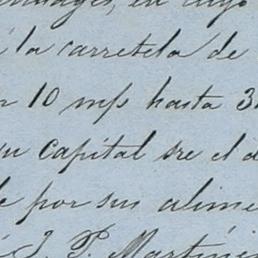 en cuyo
á la carretela de
10 mps hasta 3
su capital sre el d
por sus alime
J. P. Martíne